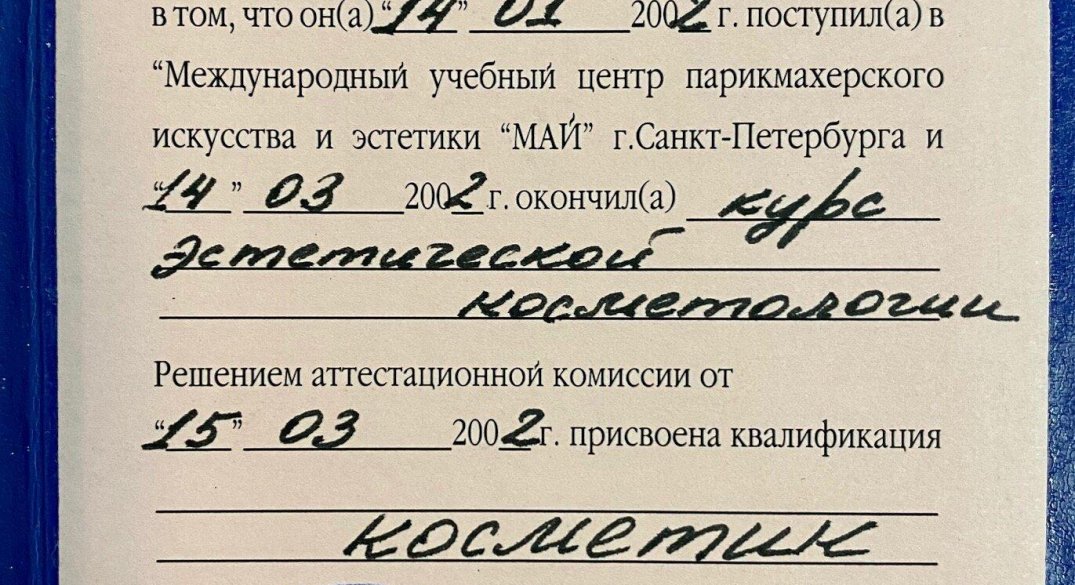 в том, что он(а) “14” 01 2002 г. поступил(а) в
“Международный учебный центр парикмахерского
искусства и эстетики “МАЙ” г.Санкт-Петербурга и
“14” 03 2002 г. окончил(а) курс
эстетической
косметологии
Решением аттестационной комиссии от
“15” 03 2002 г. присвоена квалификация
косметик